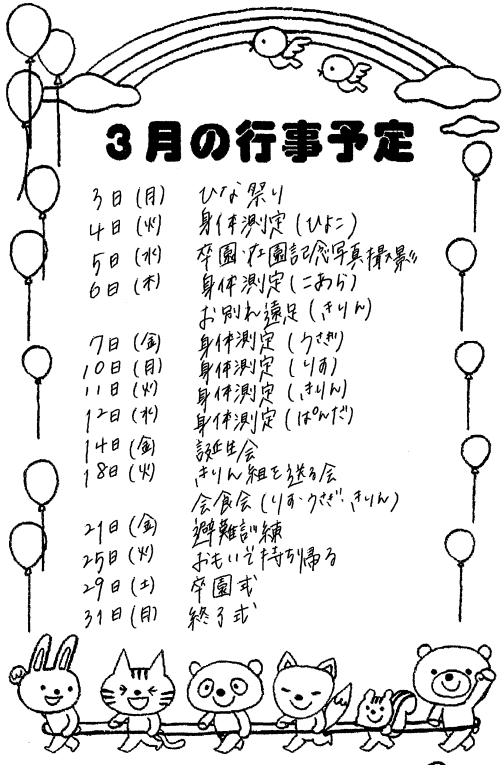 3月の行事予定
3日(月) ひな祭り
4日(火) 身体測定(ひよこ)
5日(水) 卒園・在園記念写真撮影
6日(木) 身体測定(こあら)
お別れ遠足(きりん)
7日(金) 身体測定(うさぎ)
10日(月) 身体測定(りす)
11日(火) 身体測定(きりん)
12日(水) 身体測定(ぱんだ)
14日(金) 誕生会
18日(火) きりん組を送る会
会食会(りす・うさぎ・きりん)
21日(金) 避難訓練
25日(火) おもいで持ち帰る
29日(土) 卒園式
31日(月) 終了式